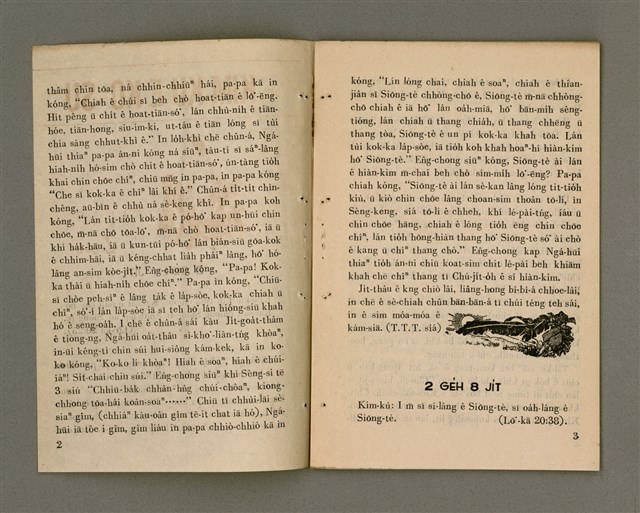 thâm chin tōa, ná chhin-chhiūⁿ hái, pa-pa kā in
kóng, “Chiah ê chúi sī beh chò hoat-tiān ê lō͘-ēng.
Hit pêng ū chi̍t ê hoat-tiān-só͘, lán chhù-nih ê tiān-
hóe, tiān-hong, siu-im-ki, ut-táu ê tiān lóng sī tùi
chia sàng chhut-khì ê.” In lo̍h-khì chē chûn-á, Ngá-
hūi thiaⁿ pa-pa án-ni kóng ná siūⁿ, táu-tí sī sáⁿ-lâng
hiah-nih hó-sim chò chit ê hoat-tiān-só͘, ún-tàng tio̍h
khai chin chōe chîⁿ, chiū mn̄g in pa-pa, in pa-pa kóng
“Che sī kok-ka ê chîⁿ lâi khí ê.” Chûn-á ti̍t-ti̍t chìn-
chêng, āu-bīn ê chhù ná sè-keng khì. In pa-pa koh
kóng, “Lán ti̍t-tio̍h kok-ka ê pó-hō͘ kap un-hūi chin
chōe, m̄-nā chō tōa-lō͘, m̄-nā chō hoat-tiān-só͘, iā ū
khí ha̍k-hāu, iā ū kun-tūi pó-hō͘ lán biān-siū gōa-kok
ê chhim-hāi, iā ū kéng-chhat lia̍h pháiⁿ lâng, hō͘ hó-
lâng an-sim kòe-ji̍t.” Eng-chong kóng, “Papa! Kok-
ka thài ū hiah-nih chōe chîⁿ.” Pa-pa in kóng, “Chiū-
sī chòe peh-sìⁿ ê lâng ta̍k ê la̍p-sòe, kok-ka chiah ū
chîⁿ, só͘-í lán la̍p-sòe iā sī teh hō͘ lán hióng-siū khah
hó ê seng-oa̍h. I chē ê chûn-á sái kàu Ji̍t-goa̍t-thâm
ê tiong-ng, Ngá-hūi oa̍t-thâu sì-khò͘-liàn-tńg khòaⁿ,
in-ūi kéng-tì chin súi hui-siông kám-kek, kā in ko-
ko kóng, “Ko-ko lí khòaⁿ! Hiah ê soaⁿ, hiah ê chúi-
iáⁿ! Si̍t-chāi chin súi.” Eng-chong siūⁿ khì Sèng-si tē
3 siú “Chhiū-ba̍k chhân-hn̂g chúi-chhòaⁿ, kiong-
chhong tōa-hái koân-soaⁿ……” Chiū tī chhùi-lāi sè-
siaⁿ gîm, (chhiáⁿ kàu-oân gîm tē-it chat iā hó), Ngá-
hūi iā tòe i gîm, gîm liáu in pa-pa chhiò-chhiò kā in
2
kóng, “Lín lóng chai, chiah ê soaⁿ, chiah ê thiⁿ-
jiân sī Siōng-tè chhòng-chō ê, Siōng-tè m̄-nā chhòng-
chō chiah ê iā hō͘ lán oa̍h-miā, hō͘ bān-mi̍h sêng-
tióng, lán chiah ū thang chia̍h, ū thang chhēng ū
thang tòa, Siōng-tè ê un pí kok-ka khah tōa. Lán
tùi kok-ka la̍p-sòe, iā tio̍h koh khah hoaⁿ-hí hiàn-kim
hō͘ Siōng-tè.” Eng-chong siūⁿ kóng, Siōng-tè ài lán
ê hiàn-kim m̄-chai beh chò sím-mi̍h lō͘-ēng? Pa-pa
chiah kóng, “Siōng-tè ài lán sè-kan lâng lóng tit-tio̍h
kiù, ū kiò chin chōe lâng choan-sim thoân tō-lí, in
Sèng-keng, siá tō-lí ê chheh, khí lé-pài-tn̂g, iáu ū
chin chōe hāng, chiah ê lóng tio̍h ēng chin chōe
chîⁿ, lán tio̍h hōng-hiàn thang hō͘ Siōng-tè só͘ ài chò
ê kang ū chîⁿ thang chò.” Eng-chong kap Ngá-hūi
thiaⁿ tio̍h án-ni chiū koat-sim chit lé-pài beh khiām
khah chē chîⁿ thang tī Chú-ji̍t-o̍h ê sî hiàn-kim.
Ji̍t-thâu ê kng chiò lâi, liâng-hong bî-bî-á chhoe-lâi,
in chē ê sè-chiah chûn bān-bān-á tī chúi téng teh sái,
in ê sim móa-móa ê
kám-siā. (T.T.T. siá)
2 GE̍H 8 JI̍T
Kim-kù: I m̄ sī sí-lâng ê Siōng-tè, sī oa̍h-lâng ê
Siōng-tè. (Lō͘-kā 20:38).
3